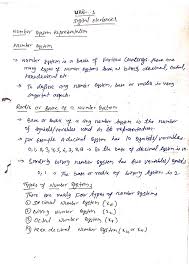 Unit-1
Digital Electronics
Number System Representation
Number System
→ Number System is a base of various
many type of Number System such as binary, decimal, octal,
hexadecimal etc
→ To define any number System, base or radix is very
important aspect.
Radix or Base of a Number System
→ Base or Radix of any number System is the number
of symbols/variables used to its representation.
→ For Example A decimal System has 10 symbols/variables
0, 1, 2, 3, 4, 5, 6, 7, 8, 9 So the base of decimal System is 10.
→ Similarly binary number System has two variables/symbols
0, 1. The base or radix of binary System is 2.
Types of Number System:
→ There are several types of Number Systems
① Decimal Number System
② Binary Number System
③ Octal Number System
④ Hexa decimal Number System